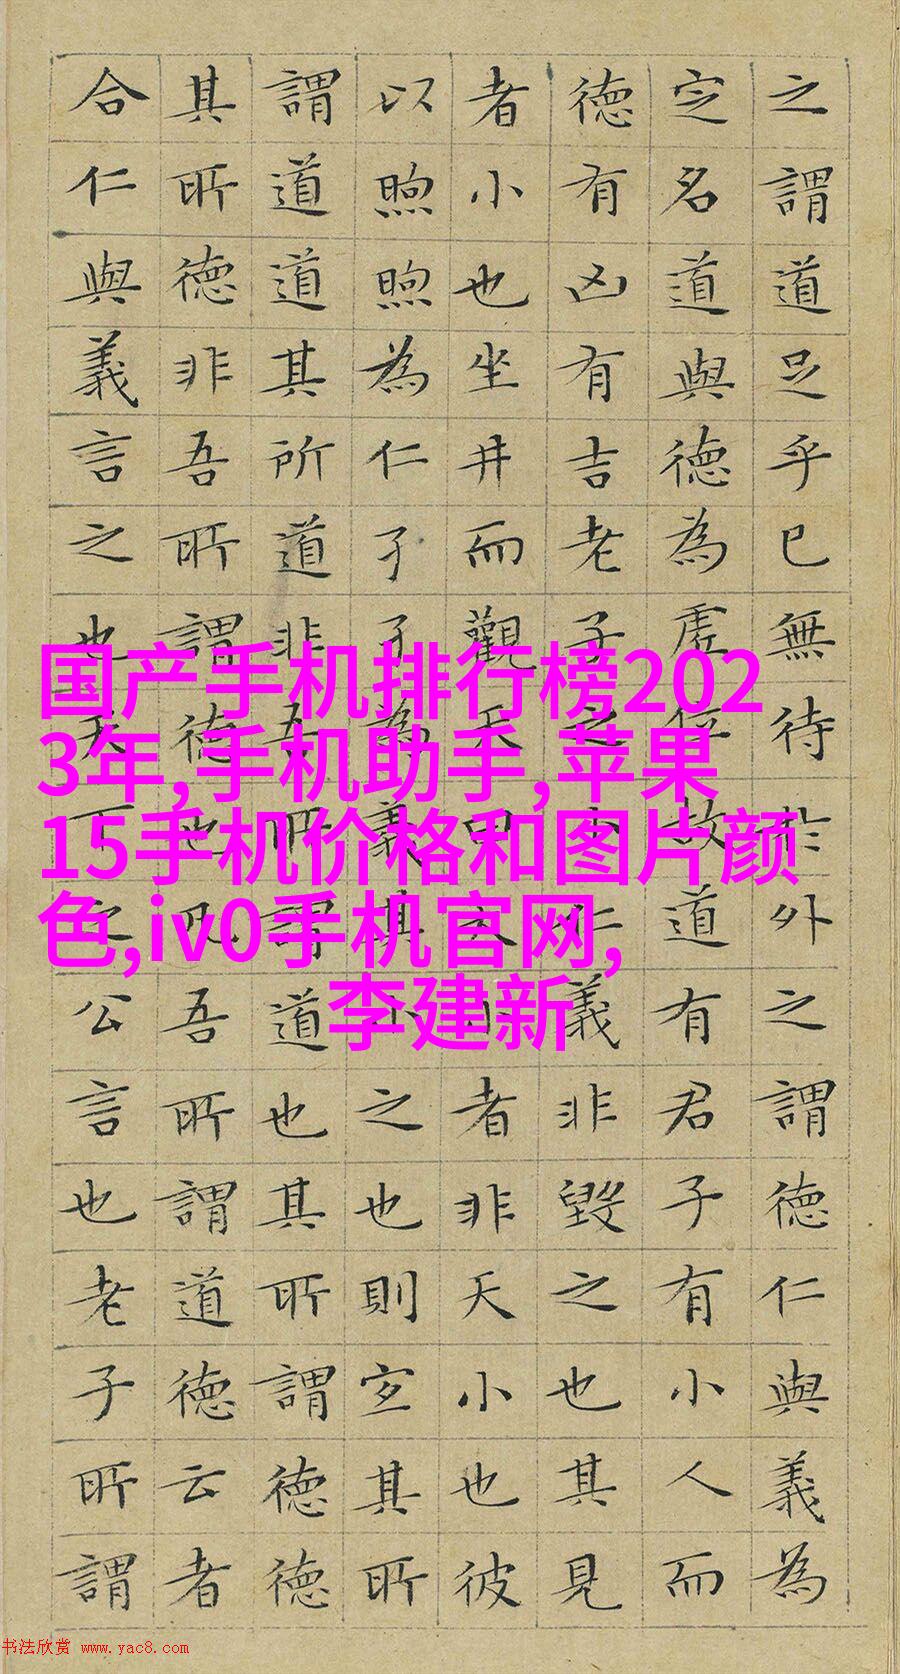 之謂道足乎已無待於外之謂德仁與義為
定名道與德為虛位故道有君子有小人而
德有凶有吉老子之小仁義非毀之也其見
者小也坐井而觀天曰天小者非天小也彼
以煦煦為仁孑孑為義其小之也則宜其所
謂道道其所道非吾所謂道也其所謂德德
其所德非吾所謂德也凡吾所謂道德云者
合仁與義言之也天下之公言也老子所謂
国产手机排行榜202
3年,手机助手,苹果
15手机价格和图片颜
色,iv0手机官网,
李建新
书法欣赏 www.yac8.com